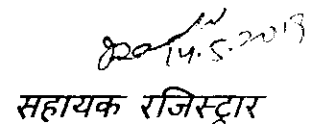 14.5.2019
सहायक रजिस्ट्रार